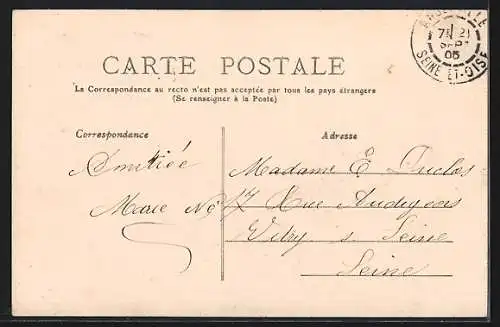 CARTE POSTALE
La Correspondance au recto n'est pas acceptée par tous les pays étrangers
(Se renseigner à la Poste)
Correspondance
Adresse
Amitiée
Marie
Madame E Duclos
17 Rue
Vitry s. Seine
Seine
7E 21
SEPT
05
SEINE-ET-OISE